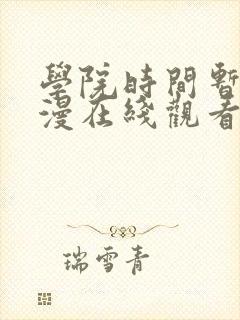 學院時間暫
漫在綫觀看
瑞雪青